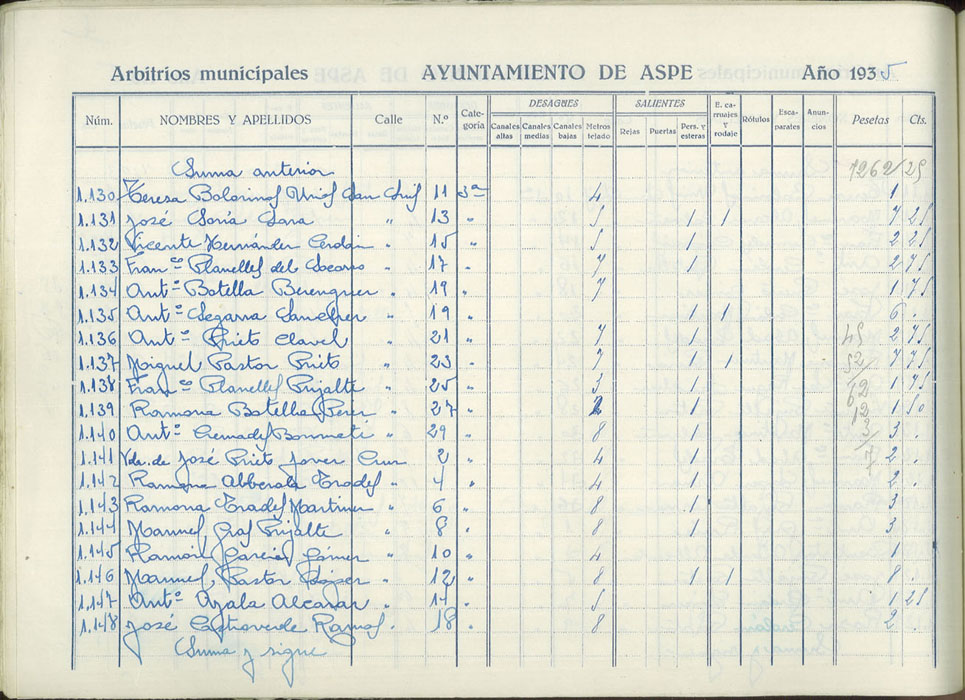 Arbitrios municipales AYUNTAMIENTO DE ASPE Año 1935
Núm. NOMBRES Y APELLIDOS Calle N.º Categoría DESAGÜES Canales altas Canales medias Canales bajas Metros tejado SALIENTES Rejas Puertas Pers. y esteras E. carruajes y rodaje Rótulos Escaparates Anuncios Pesetas Cts.
Suma anterior 7262/25
1.130 Teresa Bolorinos Urios San Luis 11 3ª 4 1
1.131 José Soria Sara " 13 " 5 1 1 7 25
1.132 Vicente Hernández Cerdán " 15 " 5 1 2 25
1.133 Franco Planelles del Socorro " 17 " 7 1 2 75
1.134 Antº Botella Berenguer " 19 " 7 1 75
1.135 Antº Segarra " 19 " 1 1 6 .
1.136 Antº Prieto Clavel " 21 " 7 1 2 75
1.137 Miguel Pastor Prieto " 23 . 7 1 1 7 75
1.138 Franco Planelles Mijalte " 25 " 3 1 1 75
1.139 Ramona Botella Pérez " 27 . 2 1 1 50
1.140 Antº Cremades Bonmatí " 29 " 8 1 3 .
1.141 Vda. de José Prieto Jover Cruz 2 " 4 1 2 .
1.142 Ramona Abberola Prades " 4 . 4 1 2 .
1.143 Ramona Prades Martínez " 6 " 8 1 3
1.144 Manuel Gras Mijalte " 8 . 8 1 3
1.145 Ramón García Gómez " 10 . 4 1
1.146 Manuel Pastor López " 12 " 8 1 1 8 .
1.147 Antº Ayala Alcaraz " 14 . 5 1 25
1.148 José Castroverde Ramos . 18 . 8 2 .
Suma y sigue